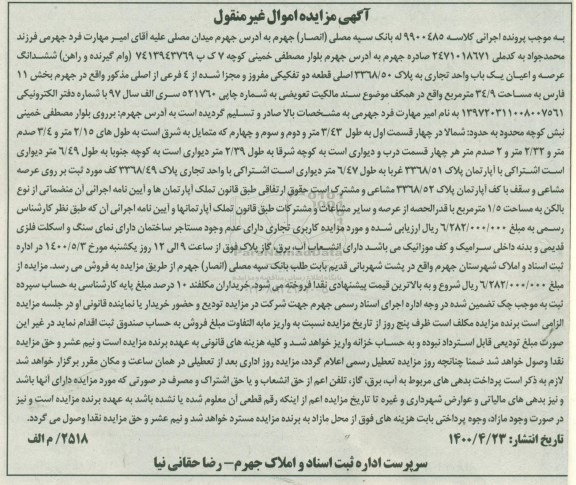 آگهی مزایده اموال غیرمنقول
به موجب پرونده اجرائی کلاسه ۹۹۰۰۴۸۵ له بانک سپه مصلی (انصار) جهرم به آدرس جهرم میدان مصلی علیه آقای امیر مهارت فرد جهرمی فرزند
محمدجواد به کدملی ۲۴۷۱۰۱۸۶۷۱ صادره جهرم به آدرس جهرم بلوار مصطفی خمینی کوچه ۷ ک پ ۷۴۱۳۹۴۳۷۶۹ (وام گیرنده و راهن) ششدانگ
عرصه و اعیان یک باب واحد تجاری به پلاک ۳۳۶۸/۵۰ اصلی قطعه دو تفکیکی مفروز و مجزا شده از ۴ فرعی از اصلی مذکور واقع در جهرم بخش ۱۱
فارس به مساحت ۳۴/۹ مترمربع واقع در همکف موضوع سند مالکیت تعویضی به شماره چاپی ۵۲۱۷۶۰ سری الف سال ۹۷ با شماره دفتر الکترونیکی
۱۳۹۷۲۰۳۱۱۰۰۸۰۰۷۵۶۱ به نام امیر مهارت فرد جهرمی به مشخصات بالا صادر و تسلیم گردیده است به آدرس جهرم: برروی بلوار مصطفی خمینی
نبش کوچه محدود به حدود: شمالا در چهار قسمت اول به طول ۳/۴۳ متر و دوم و سوم و چهارم که متمایل به شرق است به طول های ۲/۱۵ متر و ۳/۴ صدم
متر و ۲/۳۲ متر و ۲ صدم متر هر چهار قسمت درب و دیواری است به کوچه شرقا به طول ۲/۳۹ متر دیواری است به کوچه جنوبا به طول ۶/۴۹ متر دیواری
است اشتراکی با آپارتمان پلاک ۳۳۶۸/۵۱ غربا به طول ۶/۴۷ متر دیواری است اشتراکی با واحد تجاری پلاک ۳۳۶۸/۴۹ کف مورد ثبت بر روی عرصه
مشاعی و سقف با کف آپارتمان پلاک ۳۳۶۸/۵۲ مشاعی و مشترک است حقوق ارتفاقی طبق قانون تملک آپارتمان ها و آیین نامه اجرائی آن منضمائی از نوع
بالکن به مساحت ۱/۵ مترمربع با قدرالحصه از عرصه و سایر مشاعات و مشترکات طبق قانون تملک آپارتمانها و آیین نامه اجرائی آن که طبق نظر کارشناس
رسمی به مبلغ ۶/۲۸۲/۰۰۰/۰۰۰ ریال ارزیابی شده و مورد مزایده کاربری تجاری دارای عدم وجود مستاجر ساختمان دارای نمای سنگ و اسکلت فلزی
قدیمی و بدنه داخلی سرامیک و کف موزائیک می باشد دارای انشعاب آب، برق، گاز پلاک فوق از ساعت ۹ الی ۱۲ روز یکشنبه مورخ ۱۴۰۰/۵/۳ در اداره
ثبت اسناد و املاک شهرستان جهرم واقع در پشت شهربانی قدیم بابت طلب بانک سپه مصلی (انصار) جهرم از طریق مزایده به فروش می رسد. مزایده از
مبلغ ۶/۲۸۲/۰۰۰/۰۰۰ ریال شروع و به بالاترین قیمت پیشنهادی نقدا فروخته می شود. خریداران مکلفند ۱۰ درصد مبلغ پایه کارشناسی به حساب سپرده
ثبت به موجب چک تضمین شده در وجه اداره اجرای اسناد رسمی جهرم جهت شرکت در مزایده تودیع و حضور خریدار یا نماینده قانونی او در جلسه مزایده
الزامی است برنده مزایده مکلف است ظرف پنج روز از تاریخ مزایده نسبت به واریز مابه التفاوت مبلغ فروش به حساب صندوق ثبت اقدام نماید در غیر این
صورت مبلغ تودیعی قابل استرداد نبوده و به حساب خزانه واریز خواهد شد و کلیه هزینه های قانونی به عهده برنده مزایده است و نیم عشر و حق مزایده
نقدا وصول خواهد شد ضمنا چنانچه روز مزایده تعطیل رسمی اعلام گردد، مزایده روز اداری بعد از تعطیلی در همان ساعت و مکان مقرر برگزار خواهد شد
لازم به ذکر است پرداخت بدهی های مربوط به آب، برق، گاز، تلفن اعم از حق انشعاب و یا حق اشتراک و مصرف در صورتی که مورد مزایده دارای آنها باشد
و نیز بدهی های مالیاتی و عوارض شهرداری و غیره تا تاریخ مزایده اعم از اینکه رقم قطعی آن معلوم شده یا نشده باشد به عهده برنده مزایده است و نیز
در صورت وجود مازاد، وجوه پرداختی بابت هزینه های فوق از محل مازاد به برنده مزایده مسترد خواهد شد و نیم عشر و حق مزایده نقدا وصول می گردد.
تاریخ انتشار: ۱۴۰۰/۴/۲۳
۲۵۱۸/ م الف
سرپرست اداره ثبت اسناد و املاک جهرم – رضا حقانی نیا